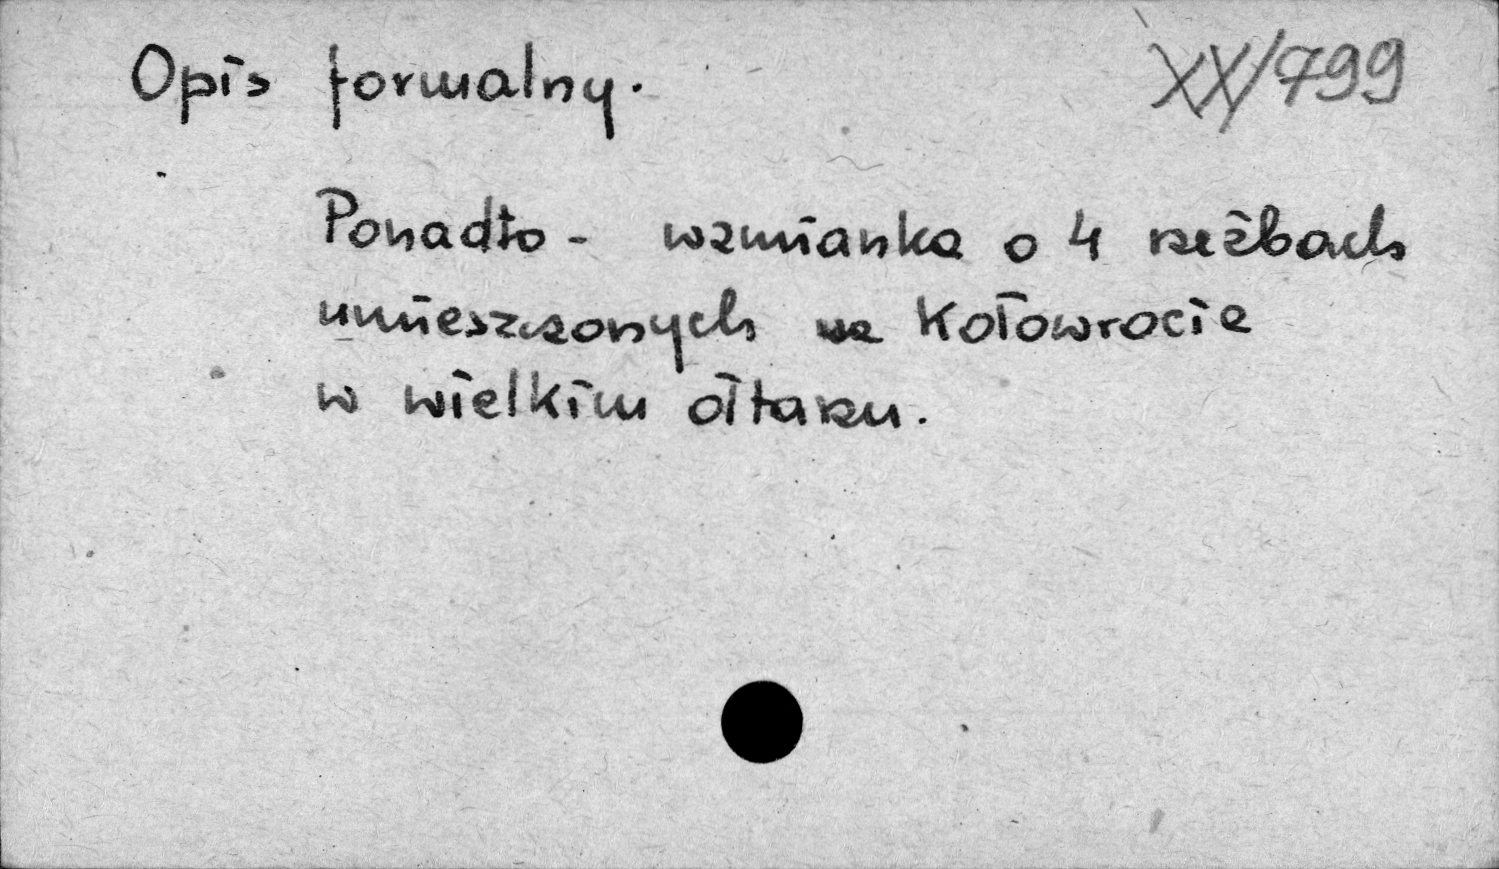 Opis formalny. XX/799
Ponadto - wzmianka o 4 rzeźbach
umieszczonych na Kołowrocie
w wielkim ołtarzu.